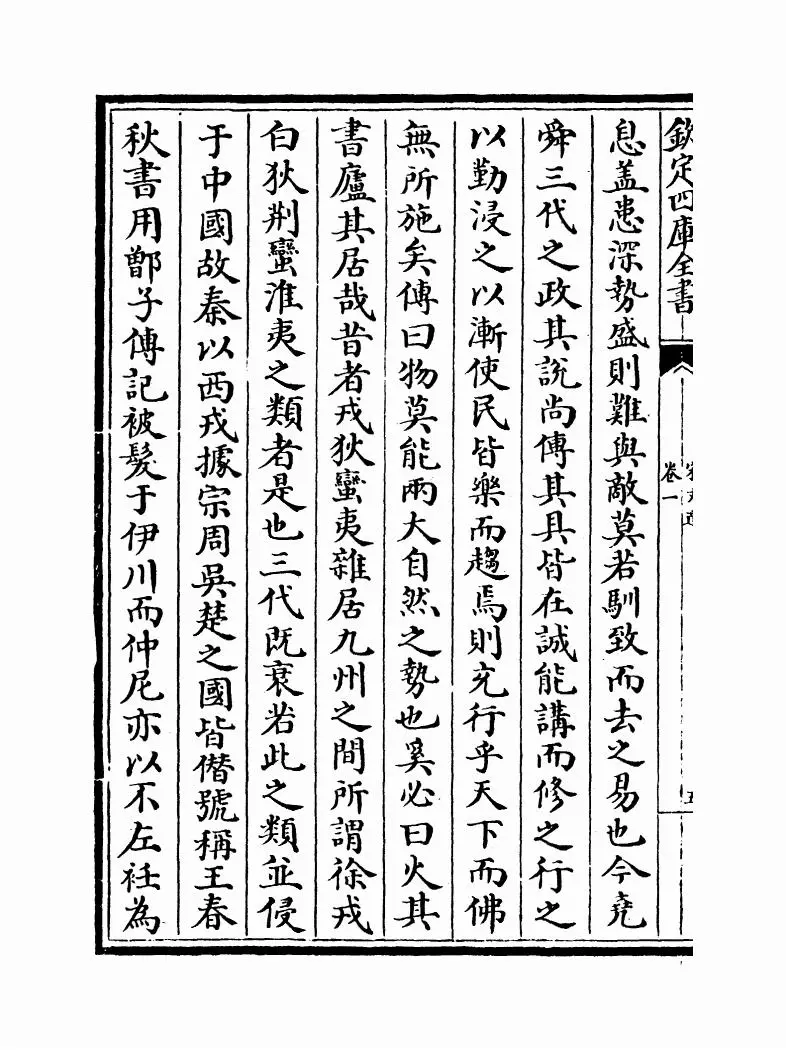 欽定四庫全書
卷一
息盖患深勢盛則難與敵莫若馴致而去之易也今堯
舜三代之政其說尚傳其具皆在誠能講而修之行之
以勤浸之以漸使民皆樂而趨焉則充行乎天下而佛
無所施矣傳曰物莫能兩大自然之勢也奚必曰火其
書廬其居哉昔者戎狄蠻夷雜居九州之間所謂徐戎
白狄荆蠻淮夷之類者是也三代既衰若此之類並侵
于中國故秦以西戎據宗周吳楚之國皆僭號稱王春
秋書用鄫子傳記被髮于伊川而仲尼亦以不左衽為